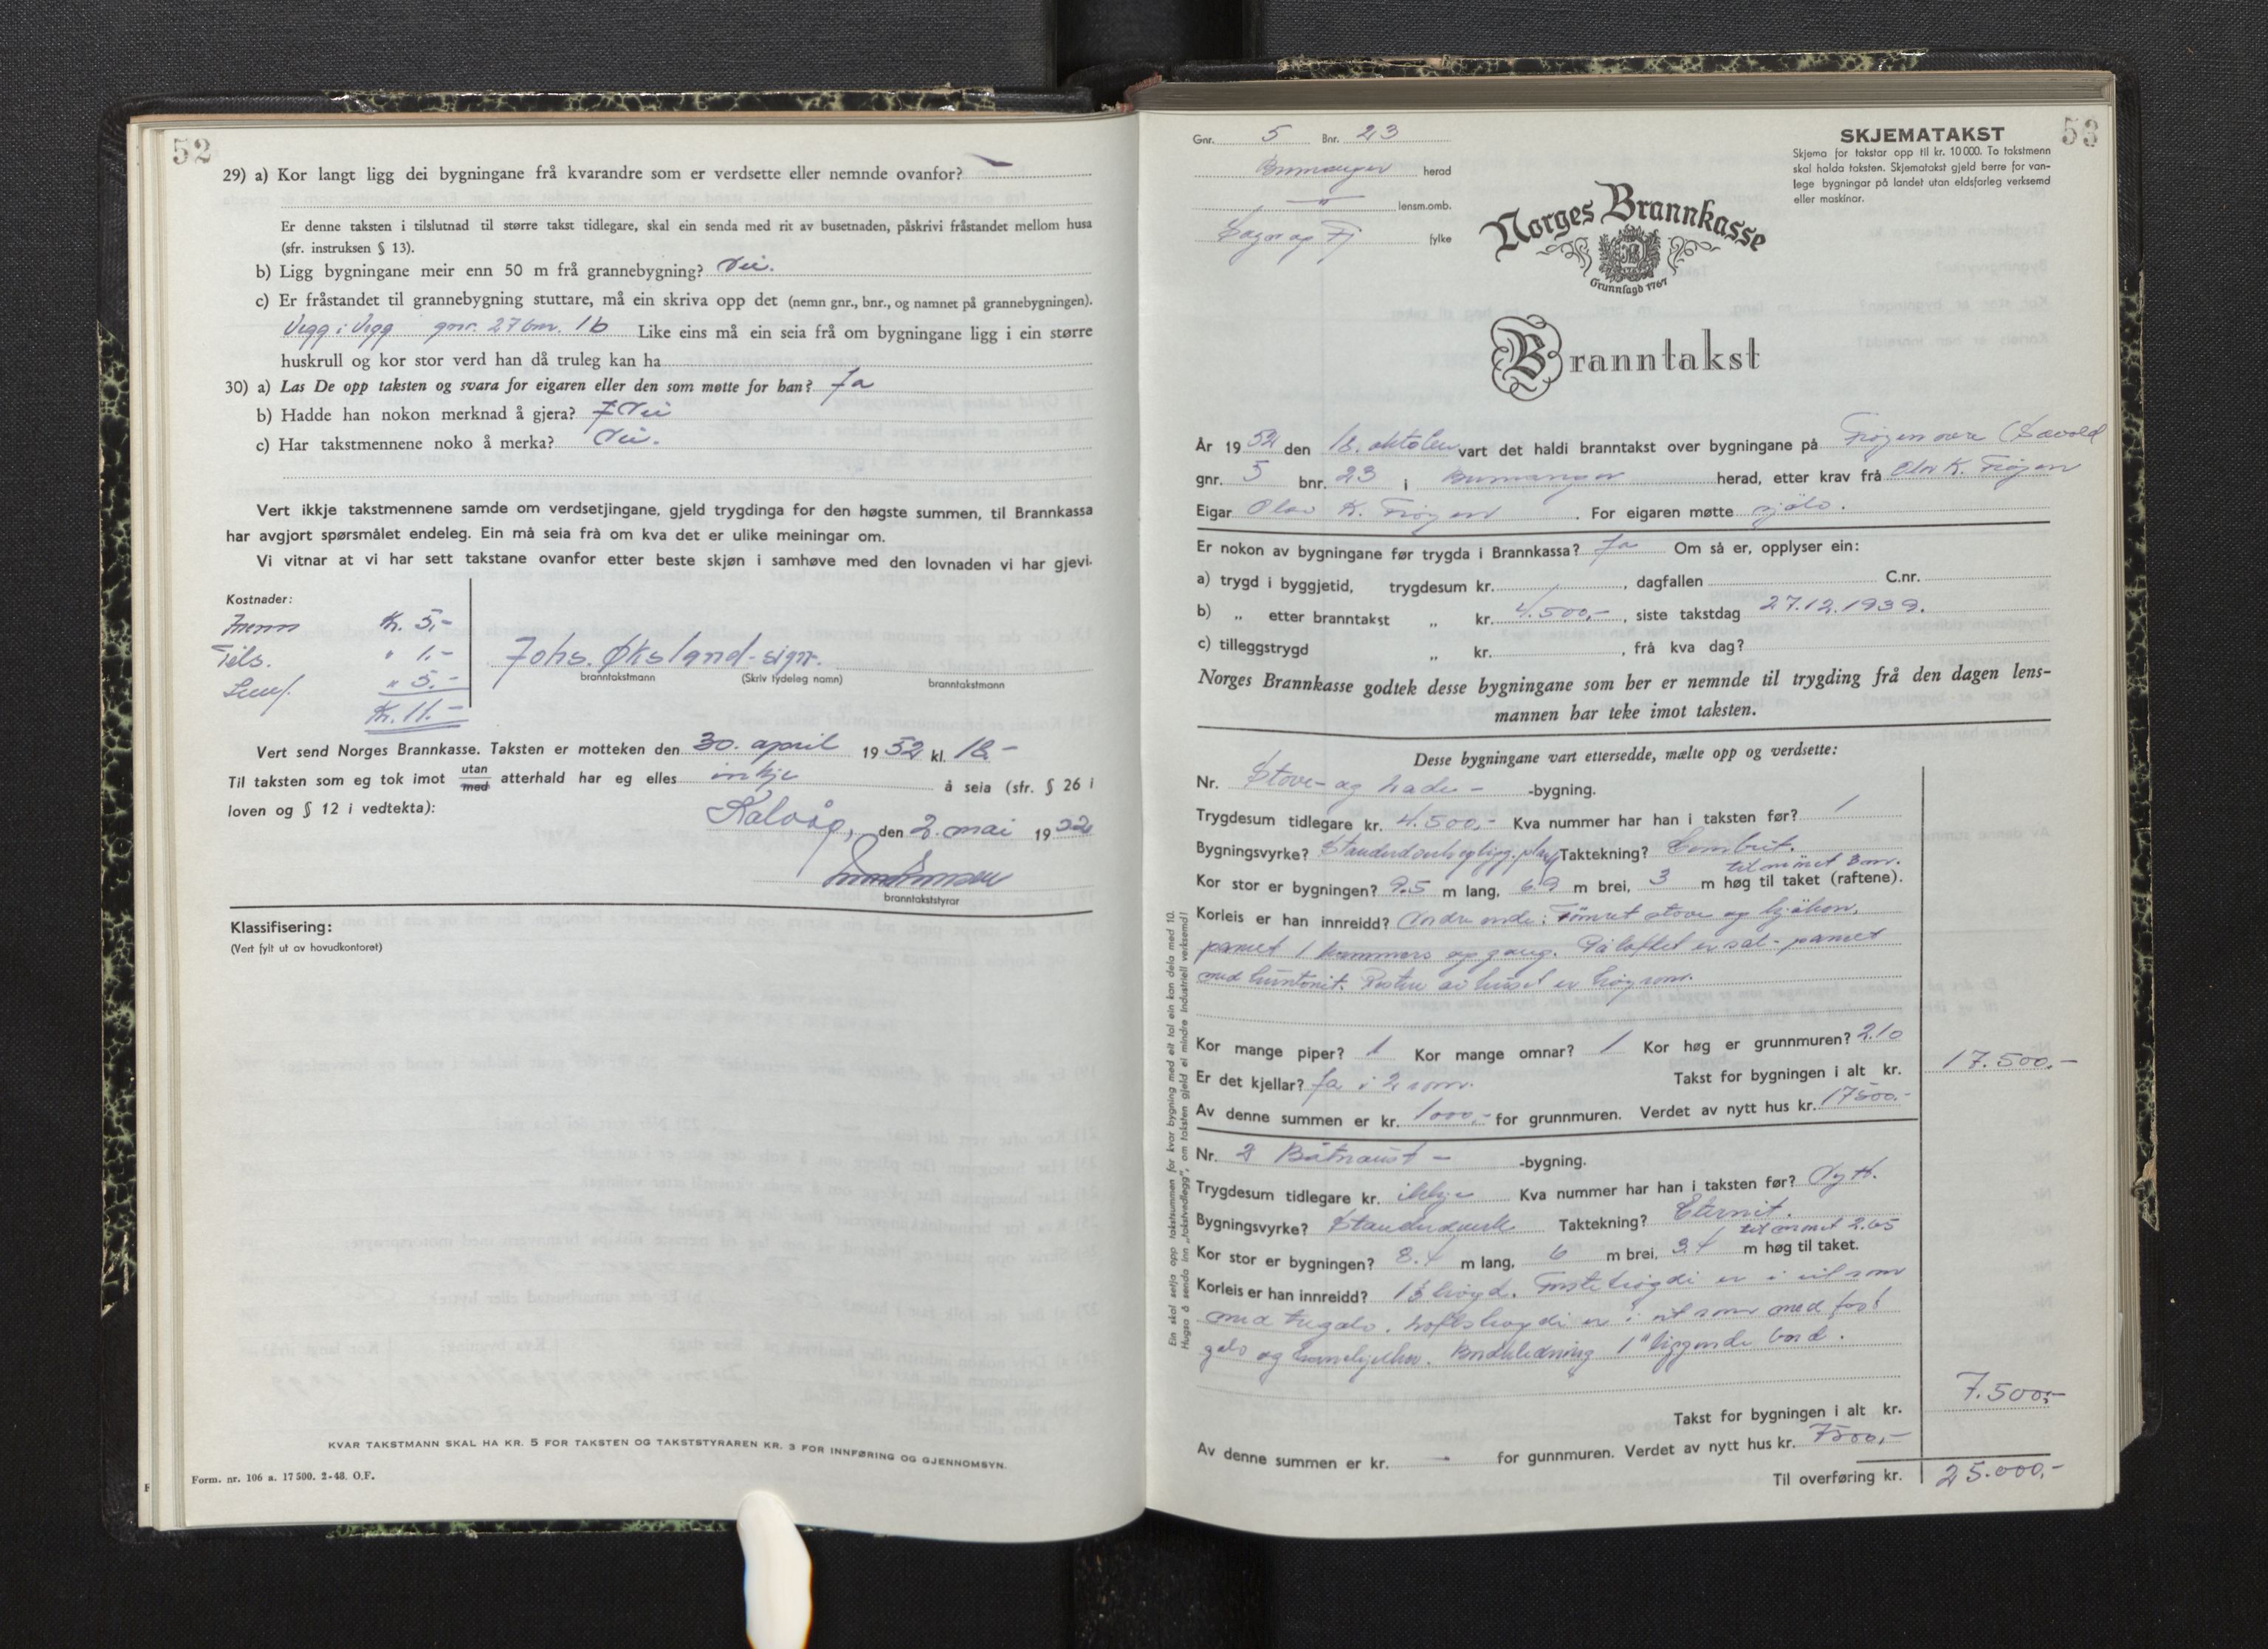 52
29) a) Kor langt ligg dei bygningane frå kvarandre som er verdsette eller nemnde ovanfor?
Er denne taksten i tilslutnad til større takst tidlegare, skal ein senda med rit av busetnaden, påskrivi fråstandet mellom husa
(sfr. instruksen § 13).
b) Ligg bygningane meir enn 50 m frå grannebygning? Nei.
c) Er fråstandet til grannebygning stuttare, må ein skriva opp det (nemn gnr., bnr., og namnet på grannebygningen).
Vegg i Vegg gnr. 27 bnr. 1b Like eins må ein seia frå om bygningane ligg i ein større
huskrull og kor stor verd han då truleg kan ha
30) a) Las De opp taksten og svara for eigaren eller den som møtte for han? Ja
b) Hadde han nokon merknad å gjera? Nei
c) Har takstmennene noko å merka? Nei.
Vert ikkje takstmennene samde om verdsetjingane, gjeld trygdinga for den høgste summen, til Brannkassa
har avgjort spørsmålet endeleg. Ein må seia frå om kva det er ulike meiningar om.
Vi vitnar at vi har sett takstane ovanfor etter beste skjøn i samhøve med den lovnaden vi har gjevi.
Kostnader:
Kr. 5,-
Tils. " 1.-
" 5.-
Kr. 11.-
Johs. Øksland - sign.
branntakstmann (Skriv tydeleg namn) branntakstmann
Vert send Norges Brannkasse. Taksten er motteken den 30. april 1952 kl. 18-
Til taksten som eg tok imot utan/med atterhald har eg elles inkje å seia (sfr. § 26 i
loven og § 12 i vedtekta):
Kalvåg, den 2. mai 1952
branntakststyrar
Klassifisering:
(Vert fylt ut av hovudkontoret)
KVAR TAKSTMANN SKAL HA KR. 5 FOR TAKSTEN OG TAKSTSTYRAREN KR. 3 FOR INNFØRING OG GJENNOMSYN.
Form. nr. 106 a. 17 500. 2-48. O.F.
53
Gnr. 5 Bnr. 23
Bremanger herad
" lensm.omb.
Sogn og Fj fylke
SKJEMATAKST
Skjema for takstar opp til kr. 10 000. To takstmenn
skal halda taksten. Skjematakst gjeld berre for van-
lege bygningar på landet utan eldsfarleg verksemd
eller maskinar.
Norges Brannkasse
Grunnlagd 1767
Branntakst
År 1952 den 18. oktober vart det haldi branntakst over bygningane på Frøyen øvre
gnr. 5 bnr. 23 i Bremanger herad, etter krav frå Olav K. Frøyen
Eigar Olav K. Frøyen. For eigaren møtte sjølv.
Er nokon av bygningane før trygda i Brannkassa? Ja Om så er, opplyser ein:
a) trygd i byggjetid, trygdesum kr. , dagfallen C.nr.
b) „ etter branntakst „ kr. 4.500,-, siste takstdag 27.12.1939.
c) tilleggstrygd „ kr. , frå kva dag?
Norges Brannkasse godtek desse bygningane som her er nemnde til trygding frå den dagen lens-
mannen har teke imot taksten.
Desse bygningane vart ettersedde, mælte opp og verdsette:
Nr. Stove- og lade- -bygning.
Trygdesum tidlegare kr. 4.500,- Kva nummer har han i taksten før? 1
Bygningsvyrke? Taktekning? Eternit.
til mønet 3 m.
Kor stor er bygningen? 9.5 m lang, 6.9 m brei, 3 m høg til taket (raftene).
Korleis er han innreidd? Nedre ende: Tømret stove og kjøken,
panelt 1 kammers og gang. På loftet er sal - panelt
med huntonit. Resten av huset er høyrom.
Kor mange piper? 1 Kor mange omnar? 1 Kor høg er grunnmuren? 2.10
Er det kjellar? Ja i 2 rom. Takst for bygningen i alt kr. 17.500.-
Av denne summen er kr. 1000,- for grunnmuren. Verdet av nytt hus kr. 17500.-
Nr. 2 Båtnaust - -bygning.
Trygdesum tidlegare kr. ikkje Kva nummer har han i taksten før? Nytt.
Bygningsvyrke? Standerverk Taktekning? Eternit.
til mønet 2.65
Kor stor er bygningen? 8.4 m lang, 6 m brei, 3.4 m høg til taket.
Korleis er han innreidd? 1½ høgd. Første høgdi er i eit rom
med tregolv. Loftshøgdi er i eit rom med fast
golv og hanebjelker. Bordkledning 1" liggende bord.
Takst for bygningen i alt kr. 7.500,-
Av denne summen er kr. - for gunnmuren. Verdet av nytt hus kr. 7500,-
Til overføring kr. 25.000,-
Ein skal setja opp takstsummen for kvar bygning med eit tal ein kan dela med 10.
Hugsa å senda inn „takstvedlegg", om taksten gjeld ei mindre industriell verksemd!